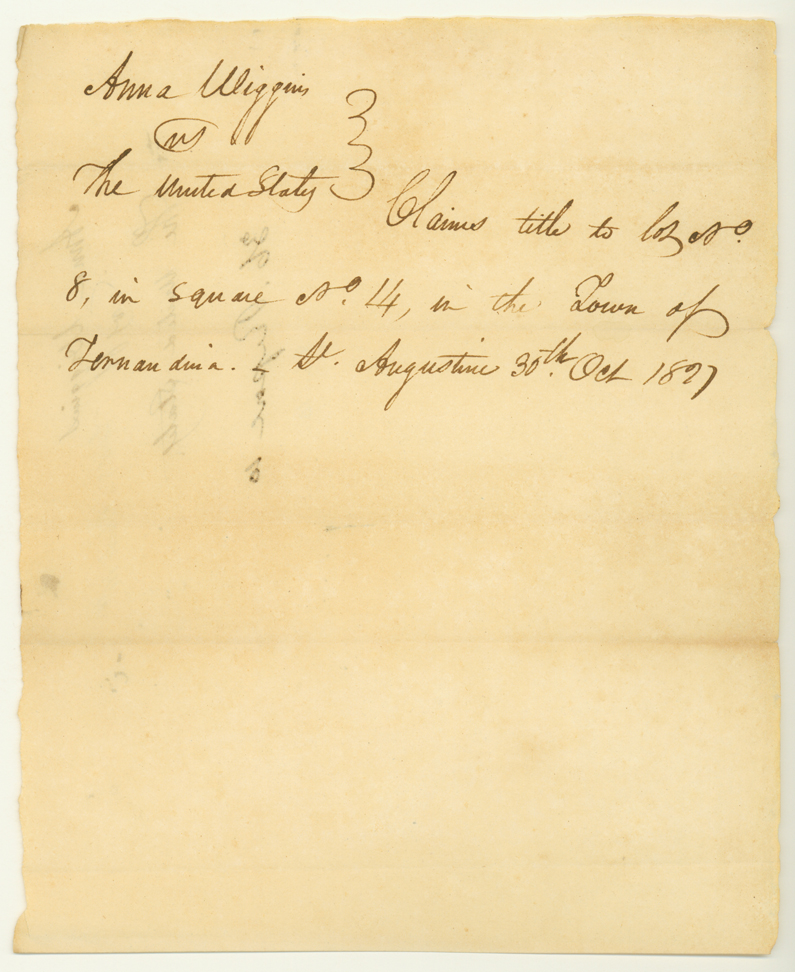 Anna Wiggins
vs
The United States
Claims title to lot No.
8, in square No. 14, in the Town of
Fernandina. - St. Augustine 30th. Oct 1827